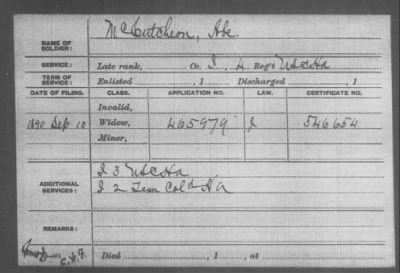 NAME OF SOLDIER: McCutcheon, Abe
SERVICE: Late rank, Co. I, 4 Reg't U S C H a
TERM OF SERVICE: Enlisted , 1 Discharged , 1
DATE OF FILING. CLASS. APPLICATION NO. LAW. CERTIFICATE NO.
Invalid,
1890 Sep 10 Widow, 465979 J 546654
Minor,
ADDITIONAL SERVICES: I 3 U S C H a
I 2 Tenn Col'd H a
REMARKS:
C.W.F.
Died , 1 , at